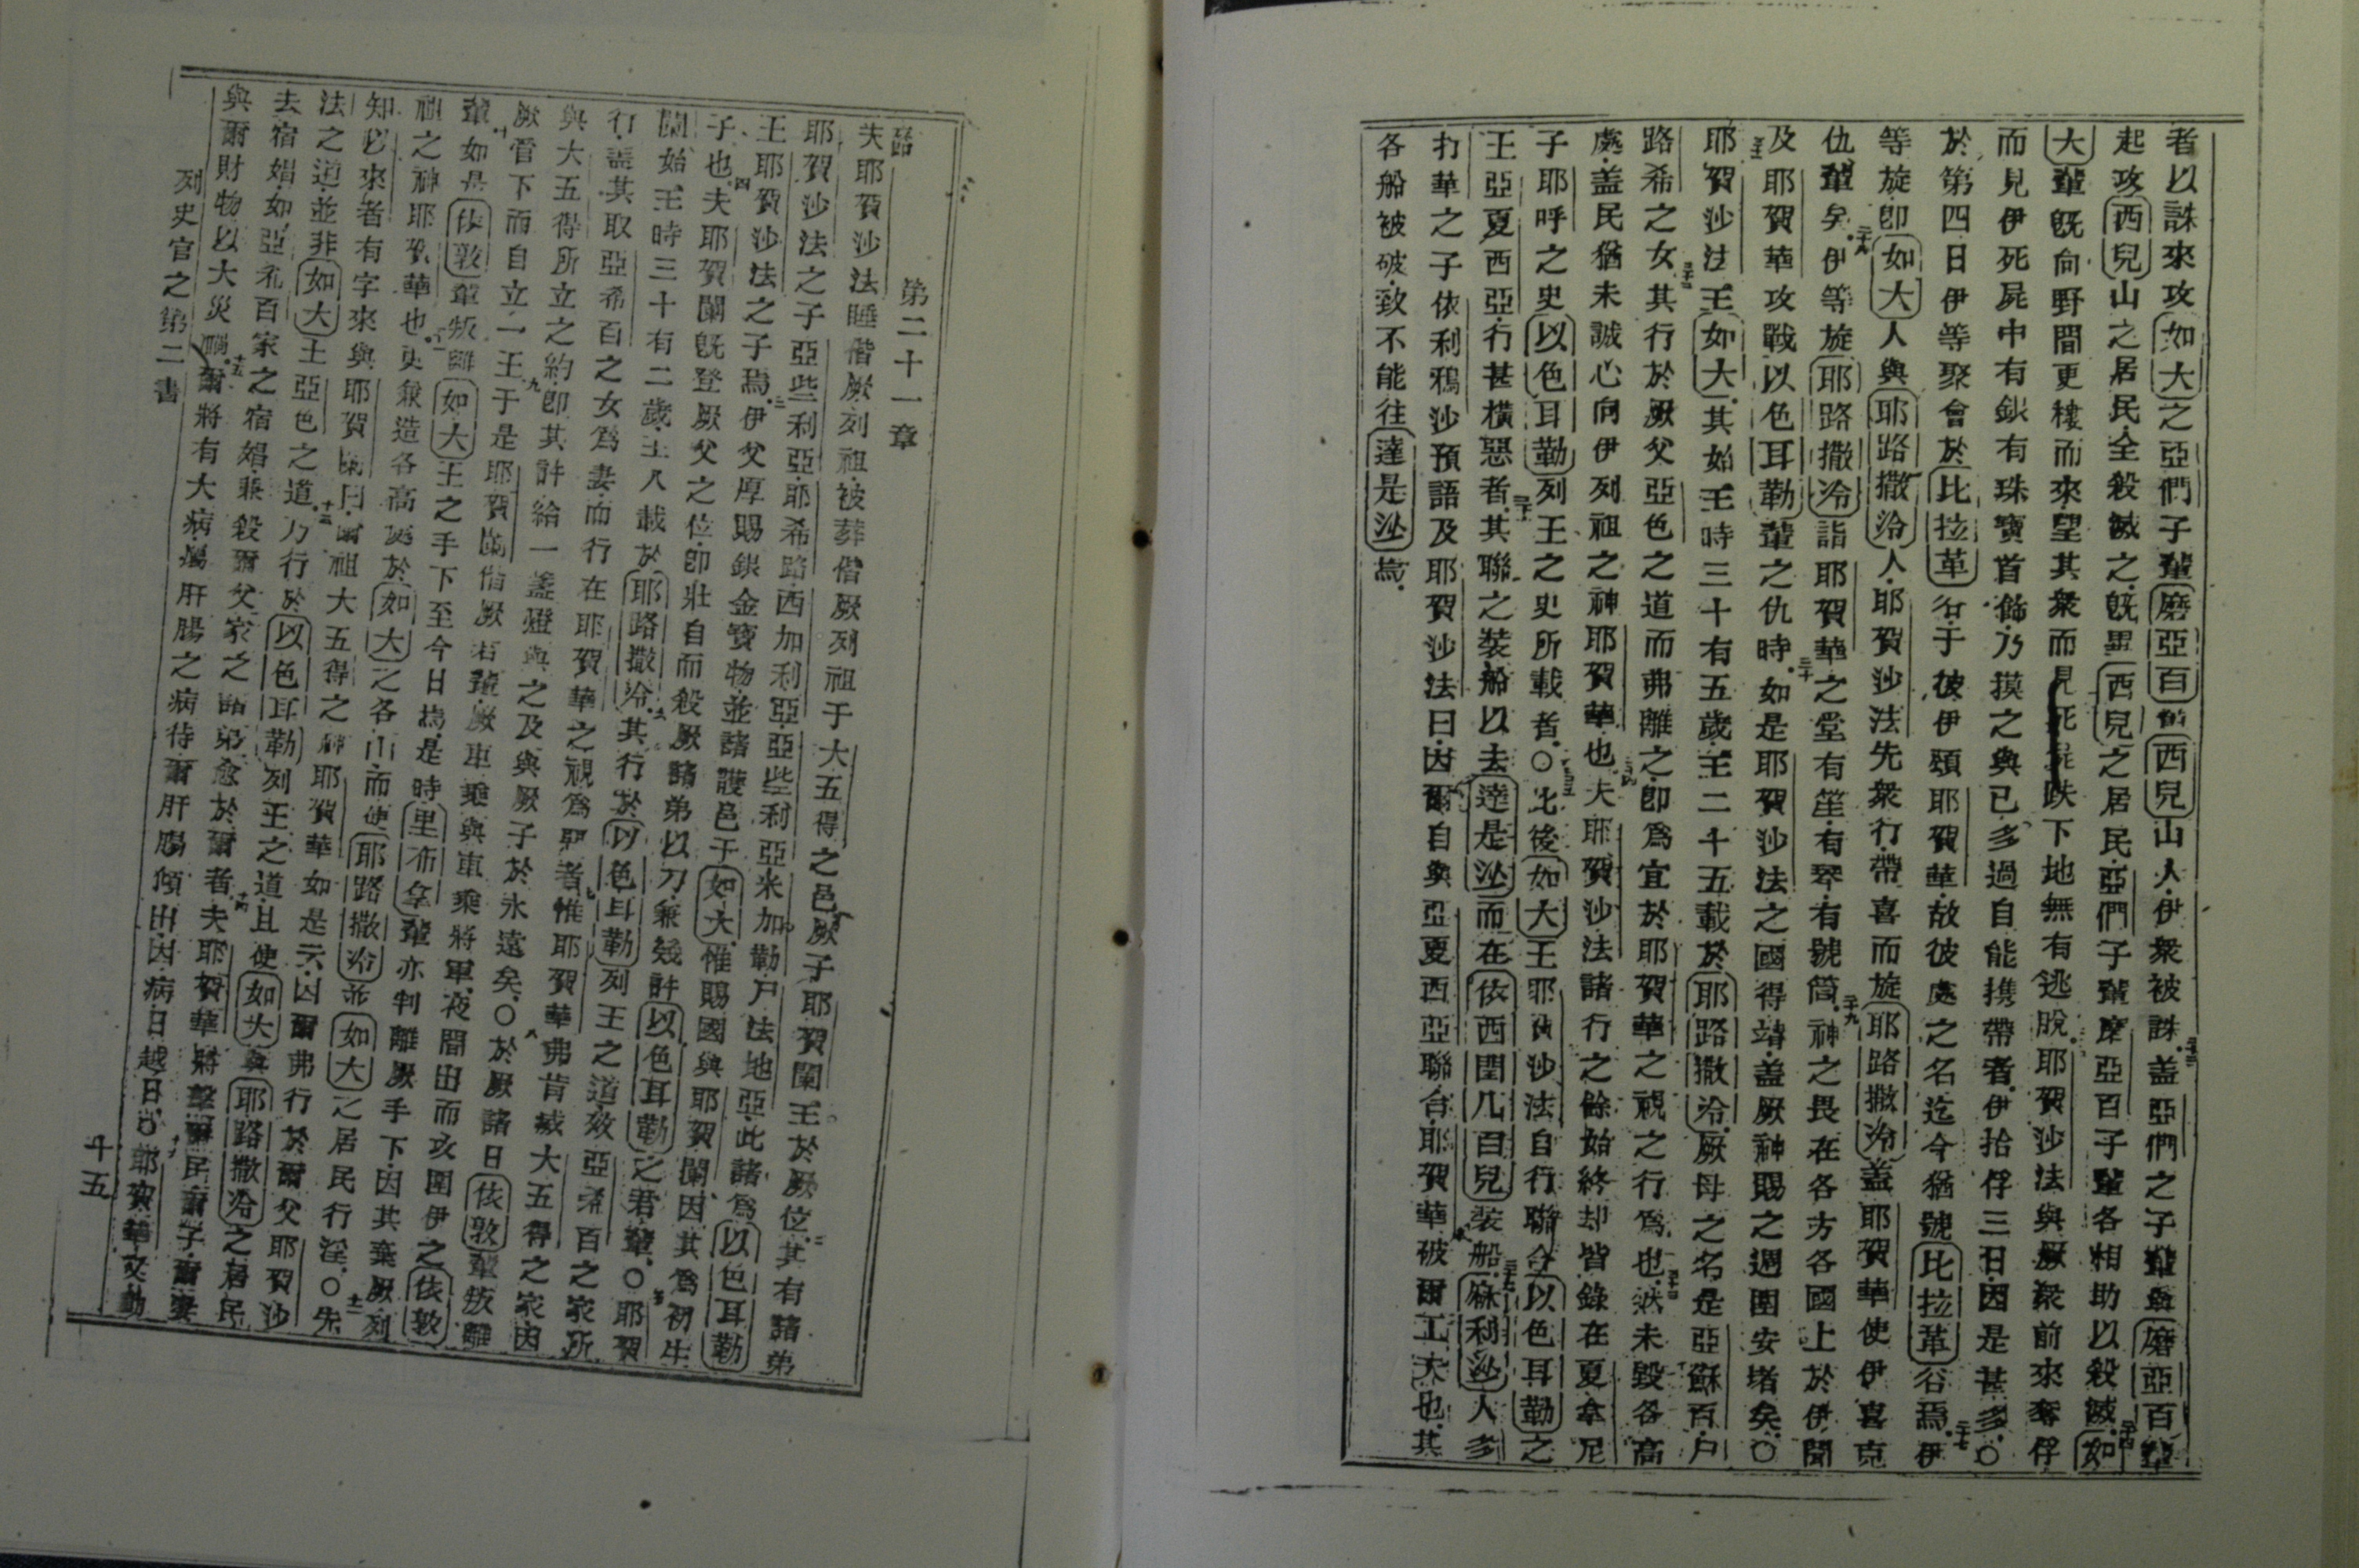 者以誅來攻如大之亞們子輩磨亞百與西兒山人伊衆被誅二十三盖亞們之子輩與磨亞百輩
起攻西兒山之居民全殺滅之既畢西兒之居民亞們子輩磨亞百子輩各相助以殺滅二十四如
大輩既向野間更樓而來望其衆而見死屍跌下地無有逃脫耶賀沙法與厥衆前來奪俘
而見伊死屍中有銀有珠寶首飾乃摸之與已多過自能携帶者伊拾俘三日因是甚多〇
於第四日伊等聚會於比拉革谷于彼伊頌耶賀華故彼處之名迄今猶號比拉革谷焉二十七伊
等旋卽如大人與耶路撒冷人耶賀沙法先衆行帶喜而旋耶路撒冷盖耶賀華使伊喜克
仇輩矣二十八伊等旋耶路撒冷詣耶賀華之堂有笙有琴有號筒二十九神之畏在各方各國上於伊聞
及耶賀華攻戰以色耳勒輩之仇時三十如是耶賀沙法之國得靖盖厥神賜之週圍安堵矣〇
三十一耶賀沙法王如大其始王時三十有五歲王二十五載於耶路撒冷厥母之名是亞蘇百戶
路希之女三十二其行於厥父亞色之道而弗離之卽爲宜於耶賀華之視之行爲也三十三然未毀各高
處盖民猶未誠心向伊列祖之神耶賀華也三十四夫耶賀沙法諸行之餘始終却皆錄在夏拿尼
子耶呼之史以色耳勒列王之史所載者〇三十五此後如大王耶賀沙法自行聯合以色耳勒之
王亞夏西亞行甚橫惡者三十六其聯之裝船以去達是沙而在依西閏几百兒裝船三十七麻利沙人多
打華之子依利鴉沙預語及耶賀沙法曰因爾自與亞夏西亞聯合耶賀華破爾工夫也其
各船被破致不能往達是沙焉
第二十一章
夫耶賀沙法睡偕厥列祖被葬偕厥列祖于大五得之邑厥子耶賀闌王於厥位二其有諸弟
耶賀沙法之子亞些利亞耶希路西加利亞亞些利亞米加勒戶法地亞此諸爲以色耳勒
王耶賀沙法之子焉三伊父厚賜銀金寶物並諸護邑于如大惟賜國與耶賀闌因其爲初生
子也四夫耶賀闌既登厥父之位卽壯自而殺厥諸弟以刀兼幾許以色耳勒之君輩〇五耶賀
闌始王時三十有二歲王八載於耶路撒冷六其行於以色耳勒列王之道效亞希百之家所
行盖其取亞希百之女爲妻而行在耶賀華之視爲惡者七惟耶賀華弗肯滅大五得之家因
與大五得所立之約卽其許給一盞燈與之及與厥子於永遠矣〇八於厥諸日依敦輩叛離
厥管下而自立一王九于是耶賀闌偕厥君輩厥車乘與車乘將軍夜間出而攻圍伊之依敦
輩十如是依敦輩叛離如大王之手下至今日焉是時里布拿輩亦判離厥手下因其棄厥列
祖之神耶賀華也十一更兼造各高處於如大之各山而使耶路撒冷並如大之居民行淫〇十二先
知以來者有字來與耶賀闌曰爾祖大五得之神耶賀華如是云因爾弗行於爾父耶賀沙
法之道並非如大王亞色之道十三乃行於以色耳勒列王之道且使如大與耶路撒冷之居民
去宿娼如亞希百家之宿娼兼殺爾父家之諸弟愈於爾者十四夫耶賀華將擊爾民爾子爾妻
與爾財物以大災禍十五爾將有大病瘍肝腸之病待爾肝腸傾出因病日越日〇耶賀華又動
列史官之第二書
十五